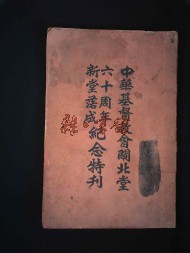 中華基督教會閘北堂
六十周年
新堂落成紀念特刊